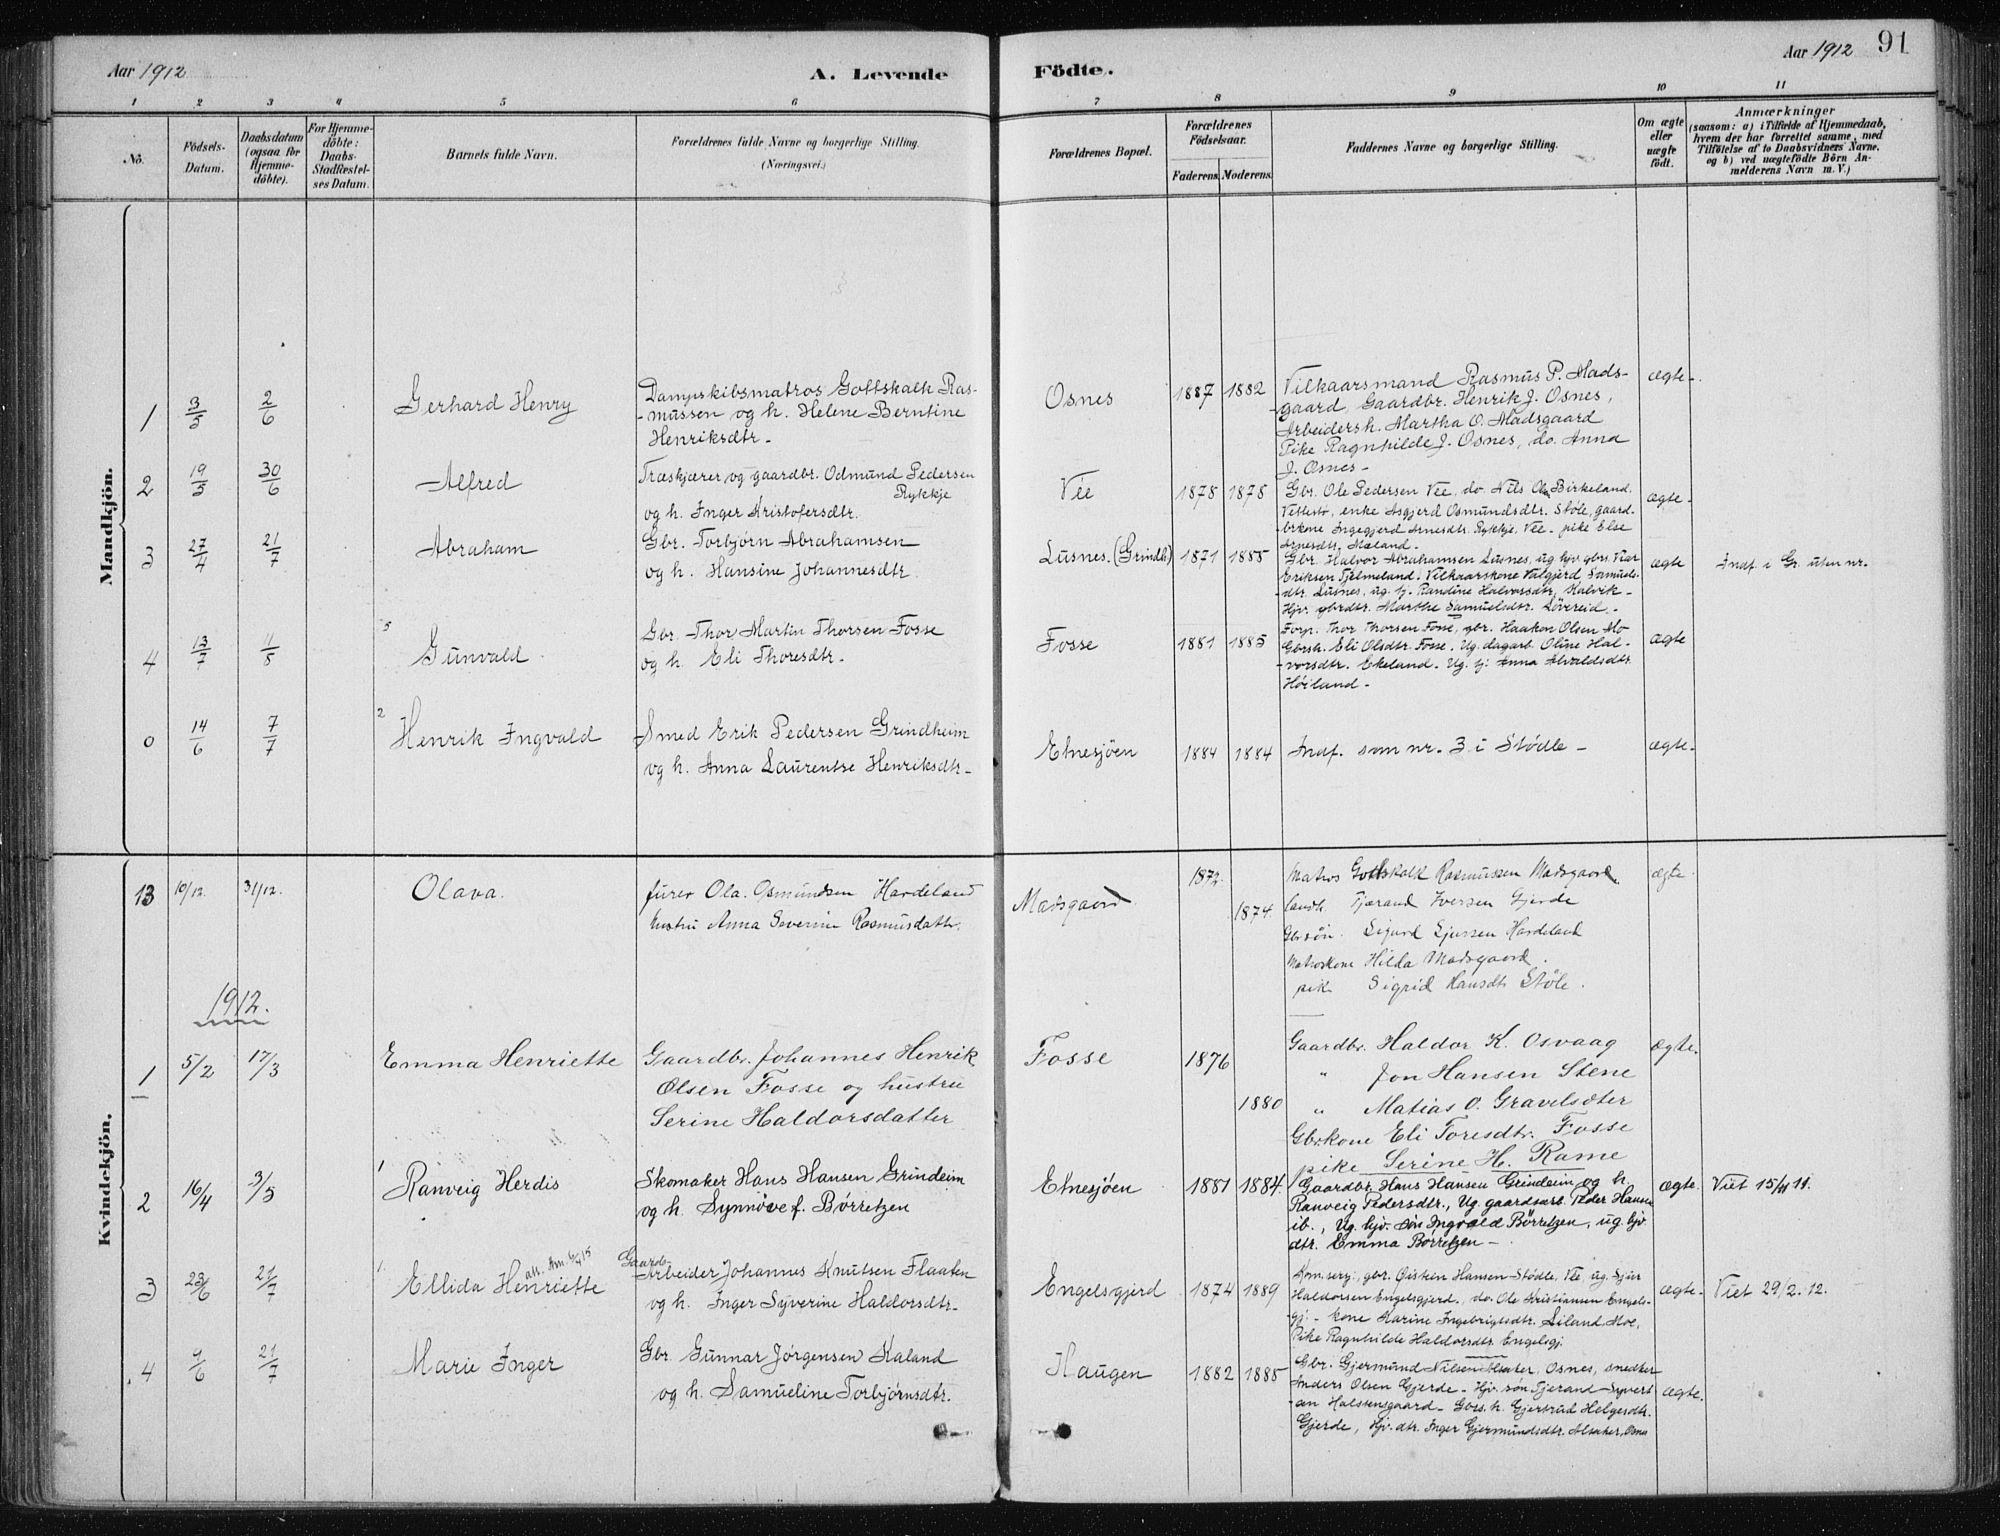 Aar 1912
A. Levende
Födte.
Aar 1912
91
1 2 3 4 5 6 7 8 9 10 11
No.
Födsels-
Datum.
Daabsdatum
(ogsaa for
Hjemme-
döbte).
For Hjemme-
döbte:
Daabs-
Stadfestel-
ses Datum.
Barnets fulde Navn.
Forældrenes fulde Navne og borgerlige Stilling.
(Næringsvei.)
Forældrenes Bopæl.
Forældrenes
Födselsaar.
Faderens.
Moderens.
Faddernes Navne og borgerlige Stilling.
Om ægte
eller
uægte
födt.
Anmærkninger
(saasom: a) i Tilfælde af Hjemmedaab,
hvem der har forrettet samme, med
Tilföielse af to Daabsvidners Navne,
og b) ved uægtefödte Börn An-
melderens Navn m. V.)
Mandkjön.
1 3/5 2/6 Gerhard Henry
Dampskibsmatros Gottskalk Ras-
-mussen og h. Helene Berntine
Henriksdtr.
Osnes 1887 1882
Vilkaarsmand Rasmus P. Mads-
-gaard, Gaardbr. Henrik J. Osnes,
Arbeidersh. Martha O. Madsgaard
Pike Ragnhilde J. Osnes, do. Anna
J. Osnes-
ægte-
2 19/5 30/6 Alfred
Træskjærer og gaardbr. Odmund Pedersen
Rykkje
og h. Inger Kristofersdtr.
Vee 1878 1878
Gbr. Ole Pedersen Vee, do. Nils Ols. Birkeland,
Vettestø, enke Asgjerd Osmundsdtr. Støle, gaard-
brkone Ingegjerd Arnesdtr. Rykkje, Vee - pike Else
Arnesdtr. Mæland.-
ægte-
3 27/4 21/7 Abraham
Gbr. Torbjørn Abrahamsen
og h. Hansine Johannesdtr.
Lusnes. (Grindh.) 1871 1885
Gbr. Halvor Abrahamsen Lusnes, ug. hjv. gbrs. Ivar
Eriksen Tjelmeland, Vilkaarskone Valgjerd Samuels-
dtr. Lusnes, ug. tj. Randine Halvorsdtr. Kalvik-
Hjv. gbrdtr. Marthe Samuelsdtr. Løvereid.-
ægte
Indf. i Gr. uten nr.
4 13/7 11/8 5 Gunvald
Gbr. Thor Martin Thorsen Fosse
og h. Eli Thoresdtr.
Fosse 1881 1885
Forp. Thor Thorsen Fosse, gbr. Haakon Olsen Mo
Gbrsk. Eli Olsdtr. Fosse. Ug. dagarb. Oline Hal-
-vorsdtr. Ekeland. Ug. tj: Anna Alvaldsdtr.
Høiland.-
ægte
0 14/6 7/7 2 Henrik Ingvald
Smed Erik Pedersen Grindheim
og h. Anna Laurentse Henriksdtr-
Etnesjøen 1884 1884
Indf. som nr. 3 i Stødle-
ægte-
Kvindekjön.
13 10/12. 31/12. Olava.
fürer Ola Osmundsen Hardeland
hustru Anna Severine Rasmusdattr.
Madsgaard 1872. 1874.
Matros Gottskalk Rasmussen Madsgaard.
Landh. Tjærand Iversen Gjerde
Gbrsøn. Sigurd Sjursen Hardeland
Matroskone Hilda Madsgaard.
pik Sigrid Hansdtr Støle.
ægte
1912.
1 5/2 17/3 Emma Henriette
Gaardbr. Johannes Henrik
Olsen Fosse og hustru
Serine Haldorsdatter
Fosse 1876 1880
Gaardbr. Haldor K. Osvaag
" Jon Hansen Stene
" Matias O. Gravelsæter
Gbrkone Eli Toresdtr. Fosse
pike Serine H. Rame
ægte.
2 16/4 3/5 1 Ranveig Herdis
Skomaker Hans Hansen Grindeim
og h. Synnøve f. Børretzen
Etnesjøen 1881 1884.
Gaardbr. Hans Hansen Grindeim og h.
Ranveig Pedersdtr., Ug. gaardsarb. Peder Hansen
ib., Ug. hjv. søn Ingvald Børretzen, ug. hjv.
dtr. Emma Børretzen-
ægte.
Viet 15/11 11.
3 23/6 21/7 1. Ellida Henriette
Gaards-
Arbeider Johannes Knutsen Flaaten
og h. Inger Syverine Haldorsdtr-
Engelsgjerd 1874 1889
Kom.serg., gbr. Øistein Hansen Stødle, Vee, ug. Sjur
Haldorsen Engelsgjerd, do. Ole Kristiansen Engels-
gj.- kone Karine Ingebrigtsdtr. Seiland Moe,
Pike Ragnhilde Haldorsdtr. Engelsgj.
ægte-
Viet 29/2. 12.
4 9/6 21/7 Marie Inger
Gbr. Gunnar Jørgensen Kaland
og h. Samueline Torbjørnsdtr.
Haugen 1882 1885
Gbr. Gjermund Nilsen Alsaker, Osnes, snedker
Anders Olsen Gjerde- Hjv. søn Tjerand Syvert
-sen Halstensgaard- Gbrs. h. Gjertrud Helgesdtr.
Gjerde, Hjv. dtr. Inger Gjermundsdtr. Alsaker, Osnes
ægte.